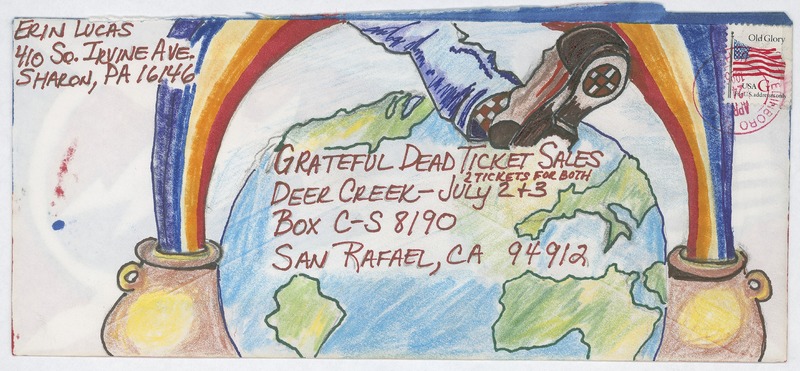 ERIN LUCAS
410 SO. IRVINE AVE.
SHARON, PA 16146
Old Glory
USA G
U.S. addresses only
APR
24
GRATEFUL DEAD TICKET SALES
2 TICKETS FOR BOTH
DEER CREEK - JULY 2+3
BOX C-S 8190
SAN RAFAEL, CA 94912